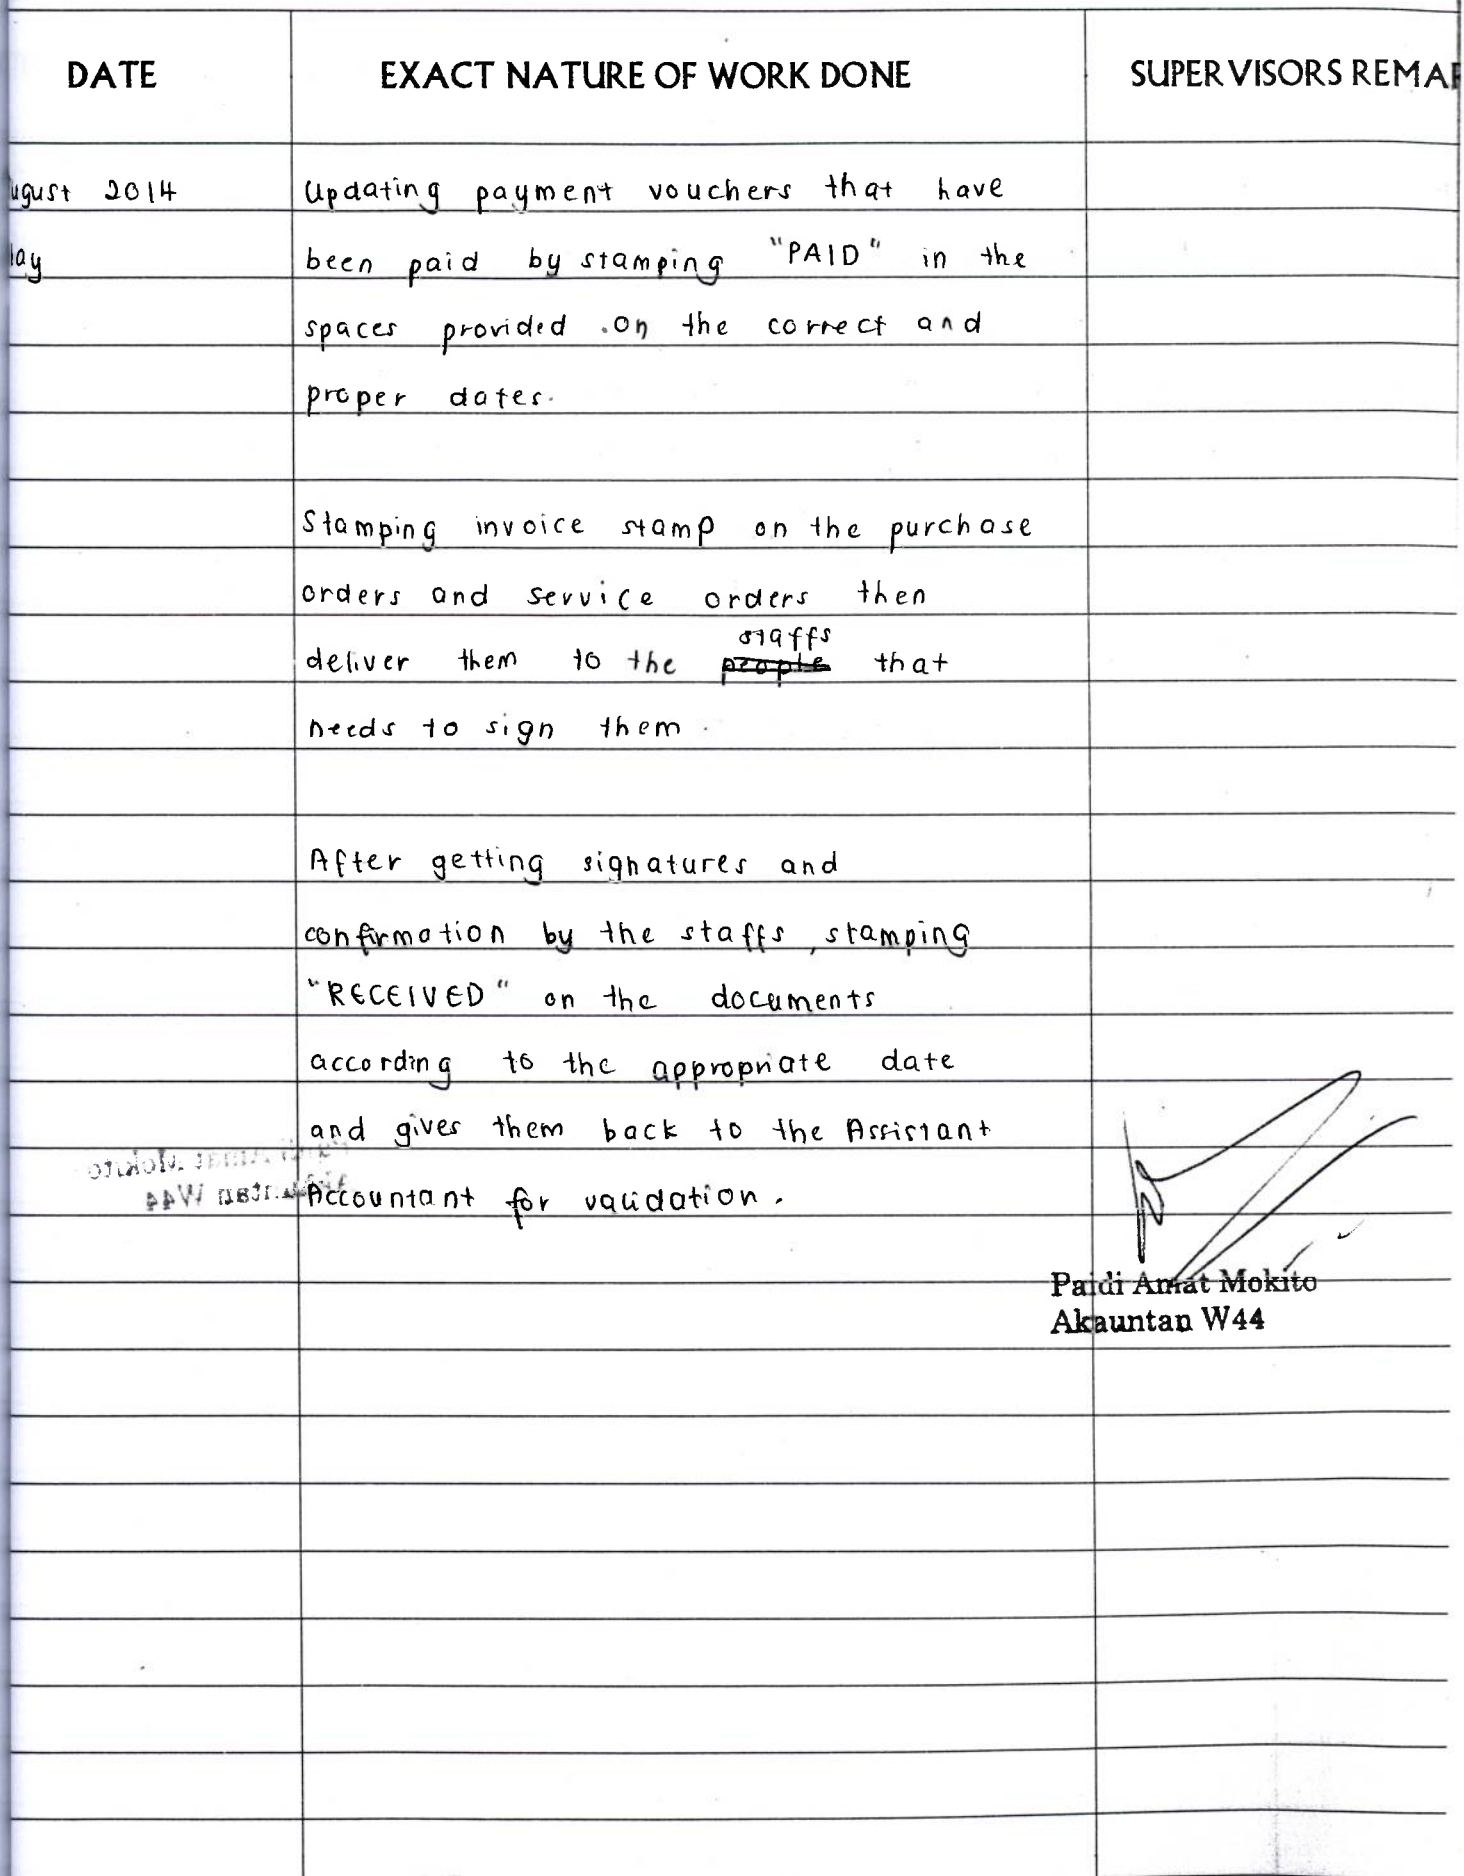 DATE EXACT NATURE OF WORK DONE SUPERVISORS REMAR
ugust 2014 Updating payment vouchers that have
ay been paid by stamping "PAID" in the
spaces provided .on the correct and
proper dates.
Stamping invoice stamp on the purchase
orders and service orders then
staffs
deliver them to the people that
needs to sign them.
After getting signatures and
confirmation by the staffs, stamping
"RECEIVED" on the documents
according to the appropriate date
and gives them back to the Assistant
Accountant for validation.
Paidi Amat Mokito
Akauntan W44